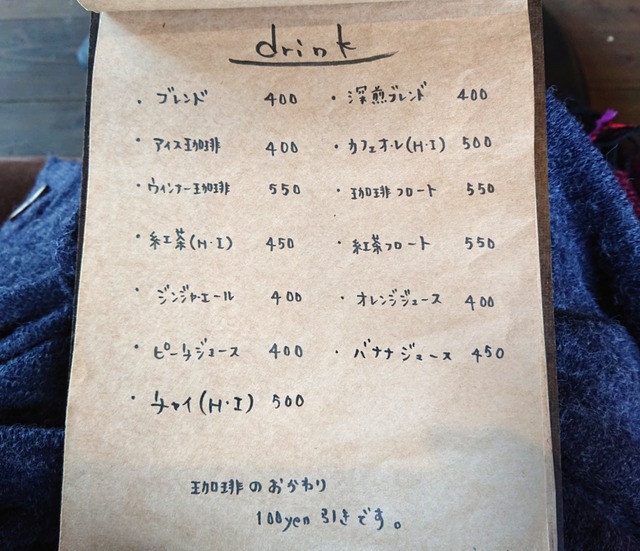 drink
・ブレンド 400 ・深煎ブレンド 400
・アイス珈琲 400 ・カフェオ・レ(H・I) 500
・ウィンナー珈琲 550 ・珈琲フロート 550
・紅茶(H・I) 450 ・紅茶フロート 550
・ジンジャエール 400 ・オレンジジュース 400
・ピーチジュース 400 ・バナナジュース 450
・チャイ(H・I) 500
珈琲のおかわり
100yen 引きです。